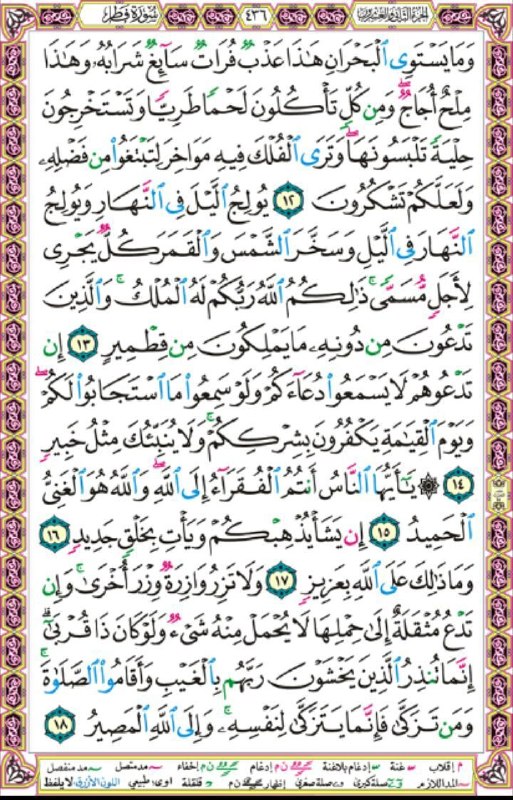 سورة فطر
٤٣٦
الجزء الثاني والعشرون
وَمَا يَسْتَوِى ٱلْبَحْرَانِ هَـٰذَا عَذْبٌ فُرَاتٌ سَآئِغٌ شَرَابُهُۥ وَهَـٰذَا
مِلْحٌ أُجَاجٌ ۖ وَمِن كُلٍّ تَأْكُلُونَ لَحْمًا طَرِيًّا وَتَسْتَخْرِجُونَ
حِلْيَةً تَلْبَسُونَهَا ۖ وَتَرَى ٱلْفُلْكَ فِيهِ مَوَاخِرَ لِتَبْتَغُوا۟ مِن فَضْلِهِۦ
وَلَعَلَّكُمْ تَشْكُرُونَ ١٢ يُولِجُ ٱلَّيْلَ فِى ٱلنَّهَارِ وَيُولِجُ
ٱلنَّهَارَ فِى ٱلَّيْلِ وَسَخَّرَ ٱلشَّمْسَ وَٱلْقَمَرَ كُلٌّ يَجْرِى
لِأَجَلٍ مُّسَمًّى ۚ ذَٰلِكُمُ ٱللَّهُ رَبُّكُمْ لَهُ ٱلْمُلْكُ ۚ وَٱلَّذِينَ
تَدْعُونَ مِن دُونِهِۦ مَا يَمْلِكُونَ مِن قِطْمِيرٍ ١٣ إِن
تَدْعُوهُمْ لَا يَسْمَعُوا۟ دُعَآءَكُمْ وَلَوْ سَمِعُوا۟ مَا ٱسْتَجَابُوا۟ لَكُمْ ۖ
وَيَوْمَ ٱلْقِيَـٰمَةِ يَكْفُرُونَ بِشِرْكِكُمْ ۚ وَلَا يُنَبِّئُكَ مِثْلُ خَبِيرٍ
١٤ ۞ يَـٰٓأَيُّهَا ٱلنَّاسُ أَنتُمُ ٱلْفُقَرَآءُ إِلَى ٱللَّهِ ۖ وَٱللَّهُ هُوَ ٱلْغَنِىُّ
ٱلْحَمِيدُ ١٥ إِن يَشَأْ يُذْهِبْكُمْ وَيَأْتِ بِخَلْقٍ جَدِيدٍ ١٦
وَمَا ذَٰلِكَ عَلَى ٱللَّهِ بِعَزِيزٍ ١٧ وَلَا تَزِرُ وَازِرَةٌ وِزْرَ أُخْرَىٰ ۚ وَإِن
تَدْعُ مُثْقَلَةٌ إِلَىٰ حِمْلِهَا لَا يُحْمَلْ مِنْهُ شَىْءٌ وَلَوْ كَانَ ذَا قُرْبَىٰٓ ۗ
إِنَّمَا تُنذِرُ ٱلَّذِينَ يَخْشَوْنَ رَبَّهُم بِٱلْغَيْبِ وَأَقَامُوا۟ ٱلصَّلَوٰةَ ۚ
وَمَن تَزَكَّىٰ فَإِنَّمَا يَتَزَكَّىٰ لِنَفْسِهِۦ ۚ وَإِلَى ٱللَّهِ ٱلْمَصِيرُ ١٨
م إقلاب غنة إدغام بلاغنة إدغام إخفاء مد متصل مد منفصل
المد اللازم صلة كبرى صلة صغرى إظهار قلقلة اوى: طبيعي اللون الأزرق لا يلفظ